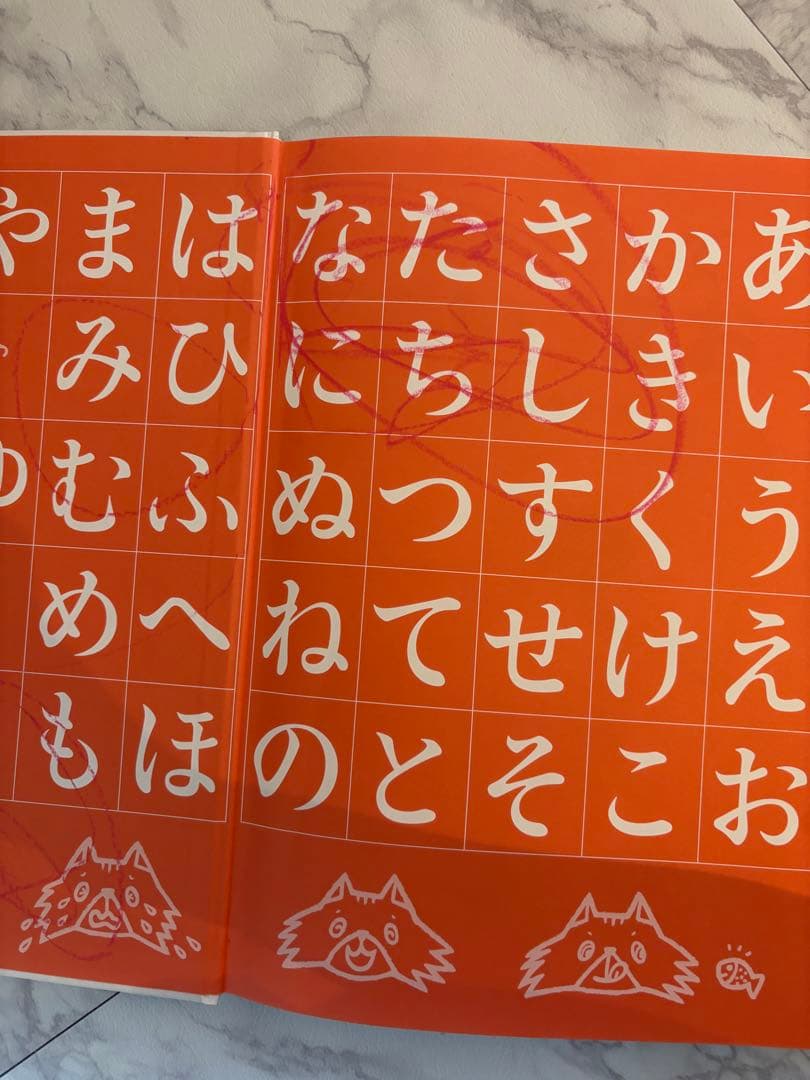 あいうえお
かきくけこ
さしすせそ
たちつてと
なにぬねの
はひふへほ
まみむめも
やゆ